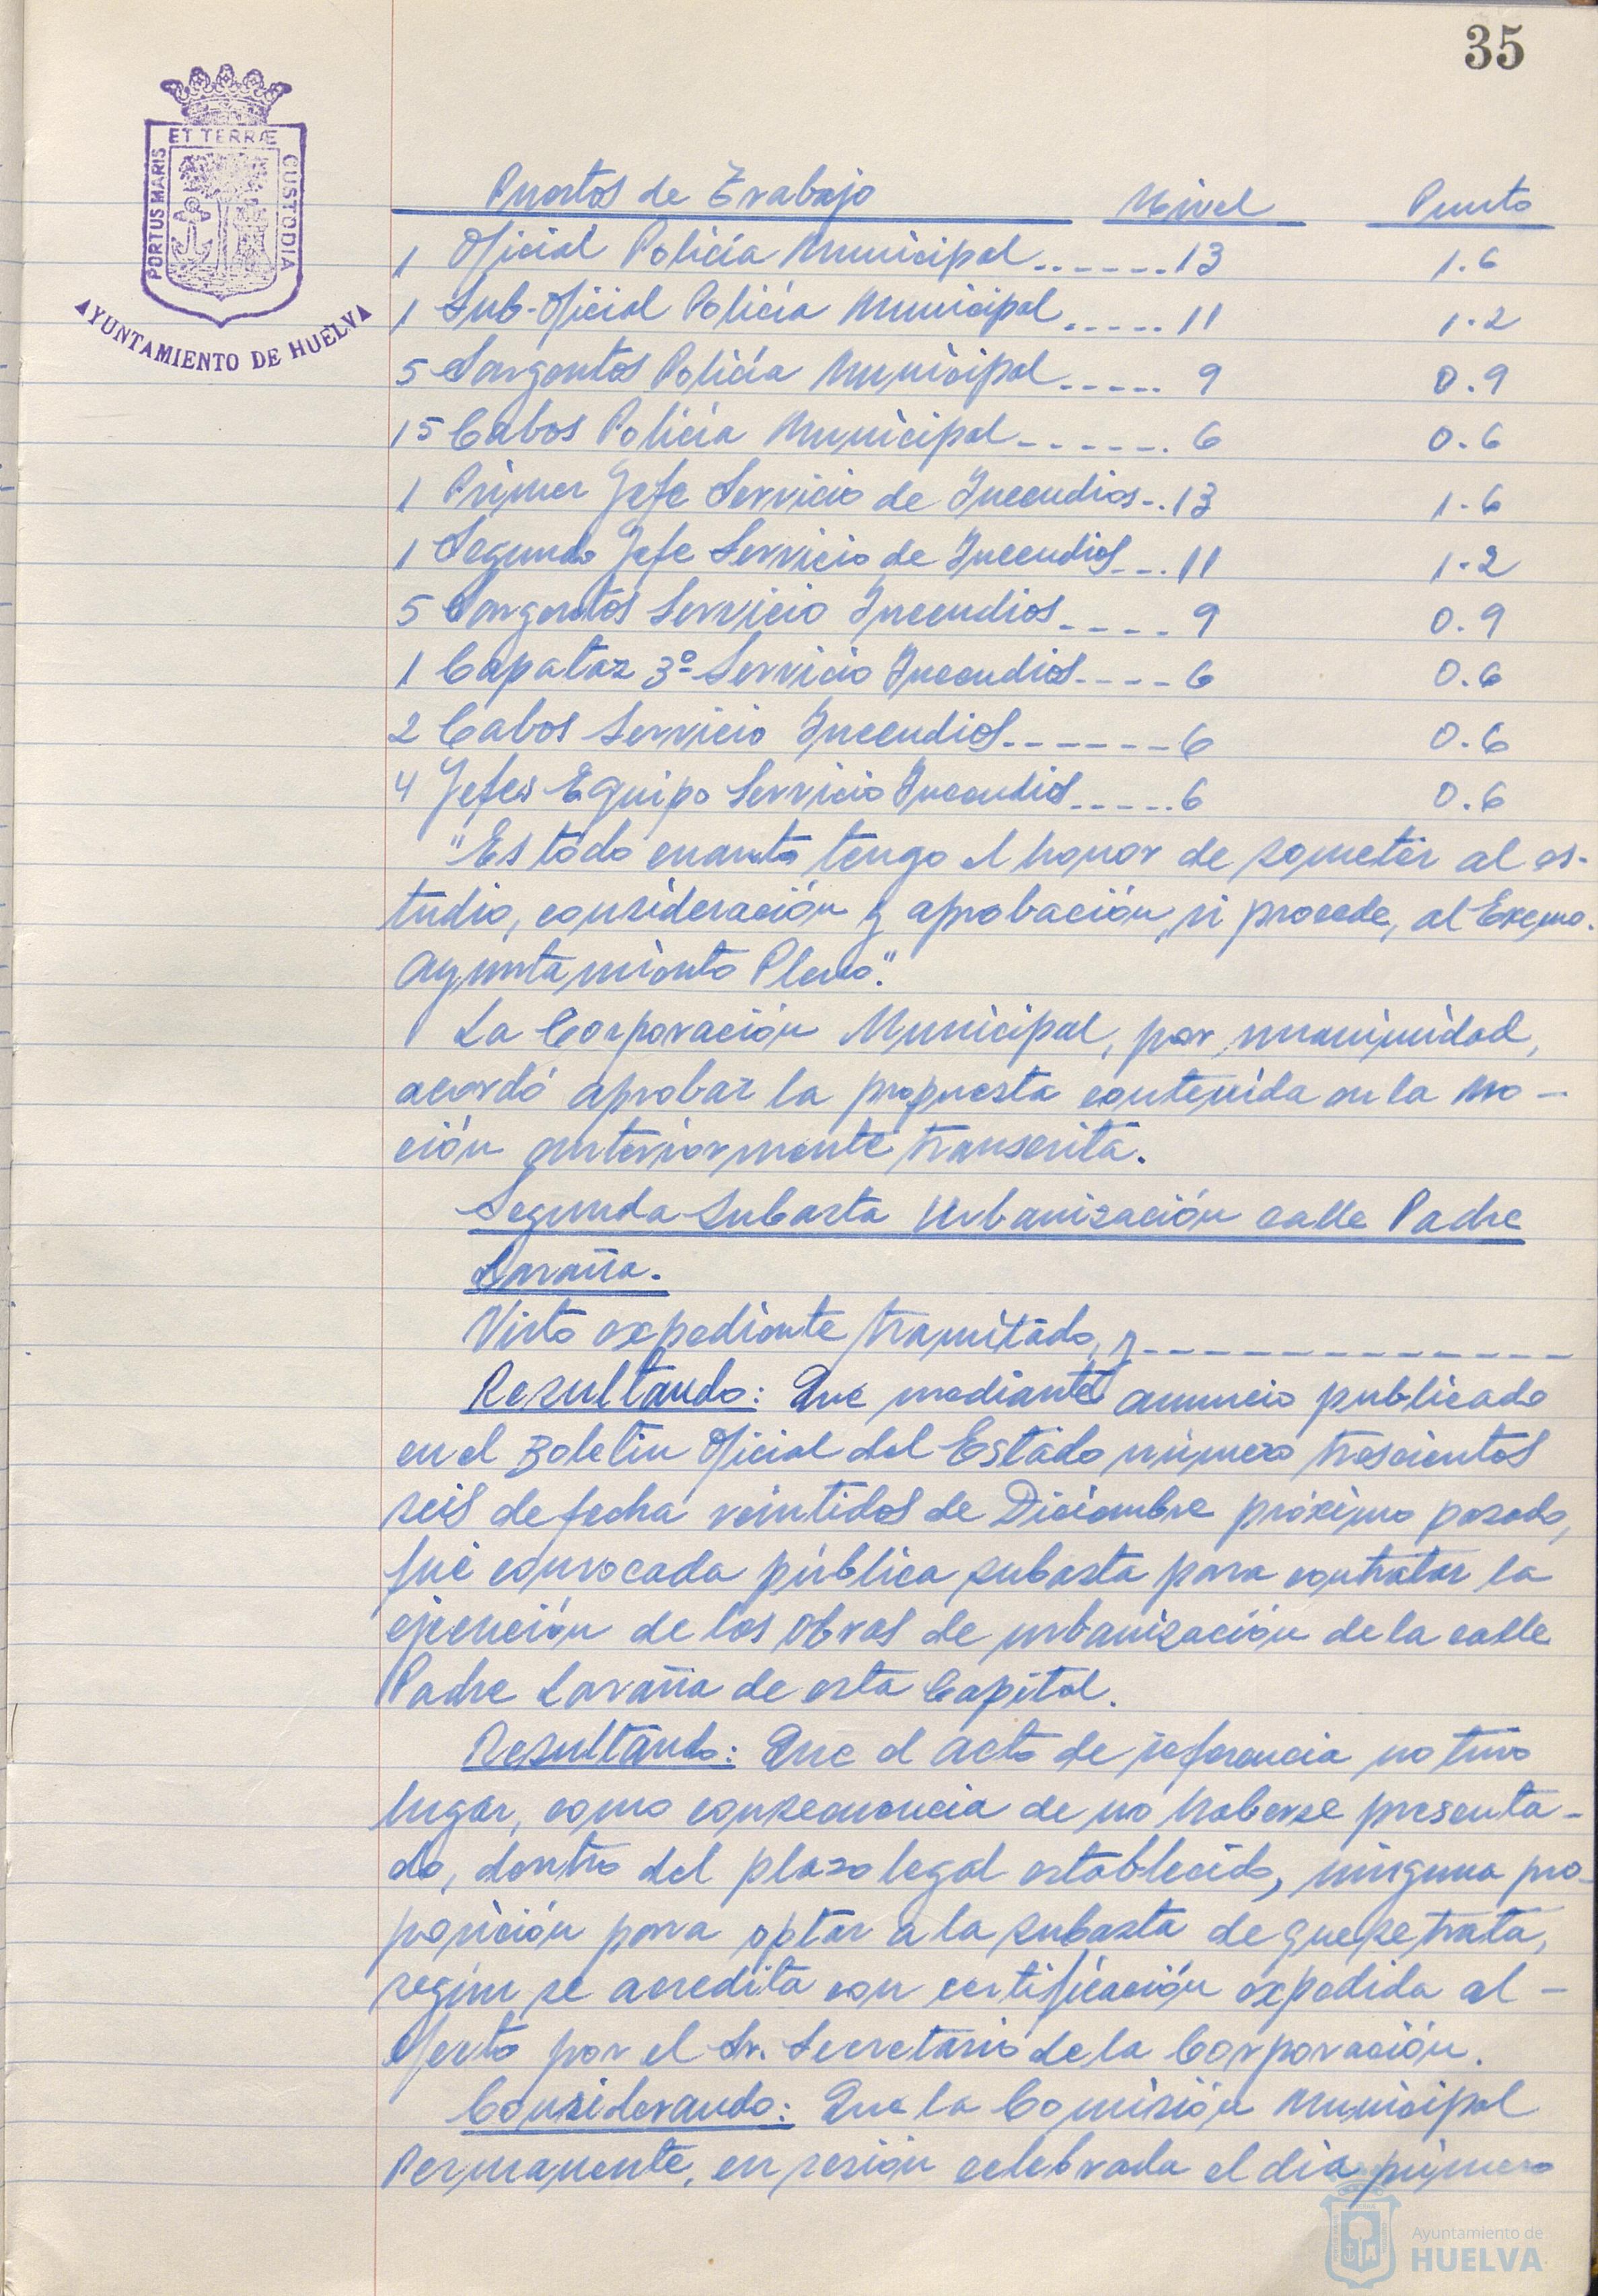 35
PORTUS MARIS ET TERRÆ CUSTODIA
AYUNTAMIENTO DE HUELVA
Puestos de Trabajo Nivel Punto
1 Oficial Policía Municipal...... 13 1.6
1 Sub-Oficial Policía Municipal..... 11 1.2
5 Sargentos Policía Municipal..... 9 0.9
15 Cabos Policía Municipal...... 6 0.6
1 Primer Jefe Servicio de Incendios.. 13 1.6
1 Segundo Jefe Servicio de Incendios... 11 1.2
5 Sargentos Servicio Incendios.... 9 0.9
1 Capataz 3º Servicio Incendios.... 6 0.6
2 Cabos Servicio Incendios...... 6 0.6
4 Jefes Equipo Servicio Incendios..... 6 0.6
"Es todo cuanto tengo el honor de someter al es-
tudio, consideración y aprobación, si procede, al Excmo.
Ayuntamiento Pleno".
La Corporación Municipal, por unanimidad,
acordó aprobar la propuesta contenida en la mo-
ción anteriormente transcrita.
Segunda subasta Urbanización calle Padre
Laraña.
Visto expediente tramitado, y
Resultando: Que mediante anuncio publicado
en el Boletín Oficial del Estado número trescientos
seis de fecha veintidos de Diciembre próximo pasado,
fué convocada pública subasta para contratar la
ejecución de las obras de urbanización de la calle
Padre Laraña de esta Capital.
Resultando: Que el acto de referencia no tuvo
lugar, como consecuencia de no haberse presenta-
do, dentro del plazo legal establecido, ninguna pro-
posición para optar a la subasta de que se trata,
según se acredita con certificación expedida al-
efecto por el Sr. Secretario de la Corporación.
Considerando: Que la Comisión Municipal
Permanente, en sesión celebrada el día primero
Ayuntamiento de
HUELVA